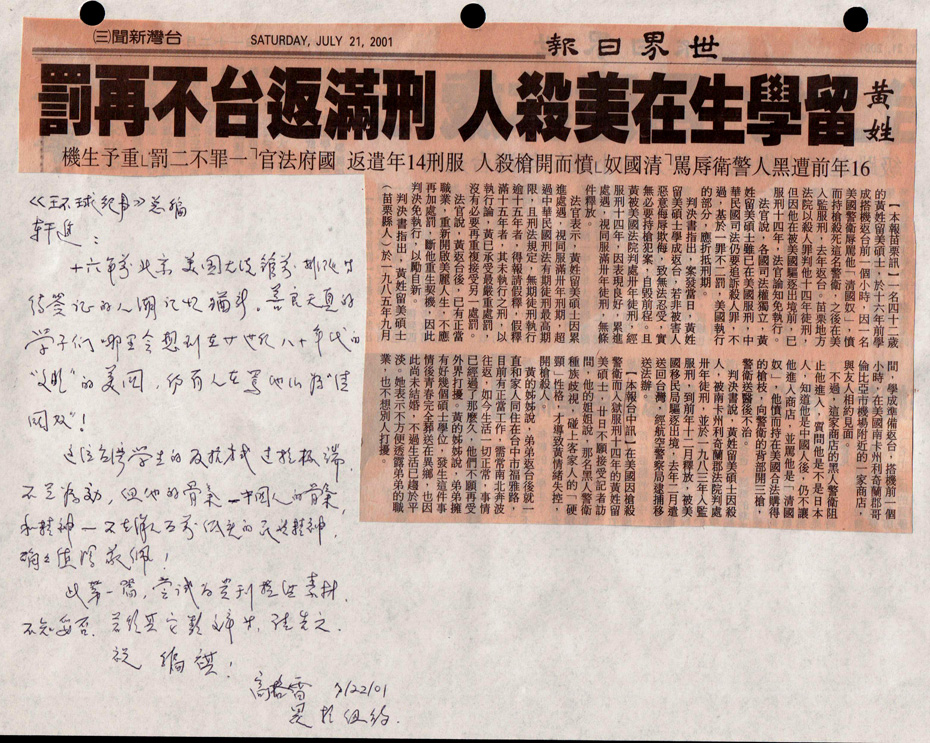 世界日報
SATURDAY, JULY 21, 2001
台灣新聞(三)
黃姓
留學生在美殺人 刑滿返台不再罰
16年前遭黑人警衛辱罵「清國奴」憤而開槍殺人 服刑14年遣返 國府法官「一罪不二罰」重予生機
【本報苗栗訊】一名四十二歲
的黃姓留美碩士,於十六年前學
成搭機返台前一個小時,因一名
美國警衛辱罵他「清國奴」,憤
而持槍殺死這名警衛,之後在美
入監服刑,去年返台。苗栗地方
法院以殺人罪判他十四年徒刑,
但因他在被美國驅逐出境前,已
服刑十四年,法官諭知免執行。
法官說,各國司法權獨立,黃
姓留美碩士雖已在美國服刑,中
華民國司法仍要追訴殺人罪,不
過,基於一罪不二罰,美國執行
的部分,應折抵刑期。
判決書指出,案發當日,黃姓
留美碩士學成返台,若非被害人
惡意侮辱欺侮,致無法忍受,實
無必要持槍犯案,自毀前程,且
黃被美國法院判處卅年徒刑,經
服刑十四年,因表現良好,累進
處遇,視同服滿卅年徒刑,無條
件釋放。
法官表示,黃姓留美碩士因累
進處遇,視同服滿卅年刑期,超
過中華民國刑法有期徒刑最高期
限,且刑法規定,無期徒刑執行
逾十五年者,得報請假釋,假釋
滿十五年者,其未執行之刑,以
執行論,黃已承受最嚴重處罰,
沒有必要再重複接受另一處罰。
法官說,黃返台後,已有正當
職業,重新開啟美麗人生,不應
再加處罰,斷他重生契機,因此
判決免執行,以勵自新。
判決書指出,黃姓留美碩士
(苗栗縣人)於一九八五年九月
間,學成準備返台,搭機前一個
小時,在美國南卡州利奇蘭郡哥
倫比亞市機場附近的一家商店,
與友人相約見面。
不過,這家商店的黑人警衛阻
止他進入,質問他是不是日本
人,知道他是中國人後,仍不讓
他進入商店,並罵他是「清國
奴」,他憤而持在美國合法購得
的槍枝,向警衛的背部開三槍,
警衛送醫後不治。
判決書說,黃姓留美碩士因殺
人,被南卡州利奇蘭郡法院判處
卅年徒刑,並於一九八三年入監
服刑,到前年十二月釋放,被美
國移民局驅逐出境,去年一月遣
送回台灣,經航空警察局逮捕移
送法辦。
【本報台中訊】在美國因槍殺
警衛而入獄服刑十四年的黃姓留
美碩士,廿日不願接受記者訪
問,他的姐姐說,那名黑人警衛
種族歧視,碰上客家人的「硬
頸」性格,才導致黃情緒失控,
開槍殺人。
黃的姊姊說,弟弟返台後就一
直和家人同住在台中市福雅路,
目前有正當工作,需常南北奔波
往返,如今生活一切正常,事情
已經過了那麼久,他們不願再受
外界打擾。黃的姊姊說,弟弟擁
有好幾個碩士學位,發生這件事
情後青春完全葬送在異鄉,也因
此尚未結婚,不過生活已趨於平
淡。她表示不方便透露弟弟的職
業,也不想別人打擾。
《环球纪事》总编
十六年前北京美国大使馆前排队等
待签证的人潮记忆犹新。善良天真的
学子们哪里会想到在廿世纪八十年代的
“文明”的美国,仍有人在骂他们为“清
国奴”!
这位台湾学生的反抗方式过于极端,
但他的骨气—中国人的骨气
和精神—
确实值得敬佩!
此第一篇,尝试为贵刊提供素材,
不知妥否。
祝 编祺!
7/22/01
于纽约.